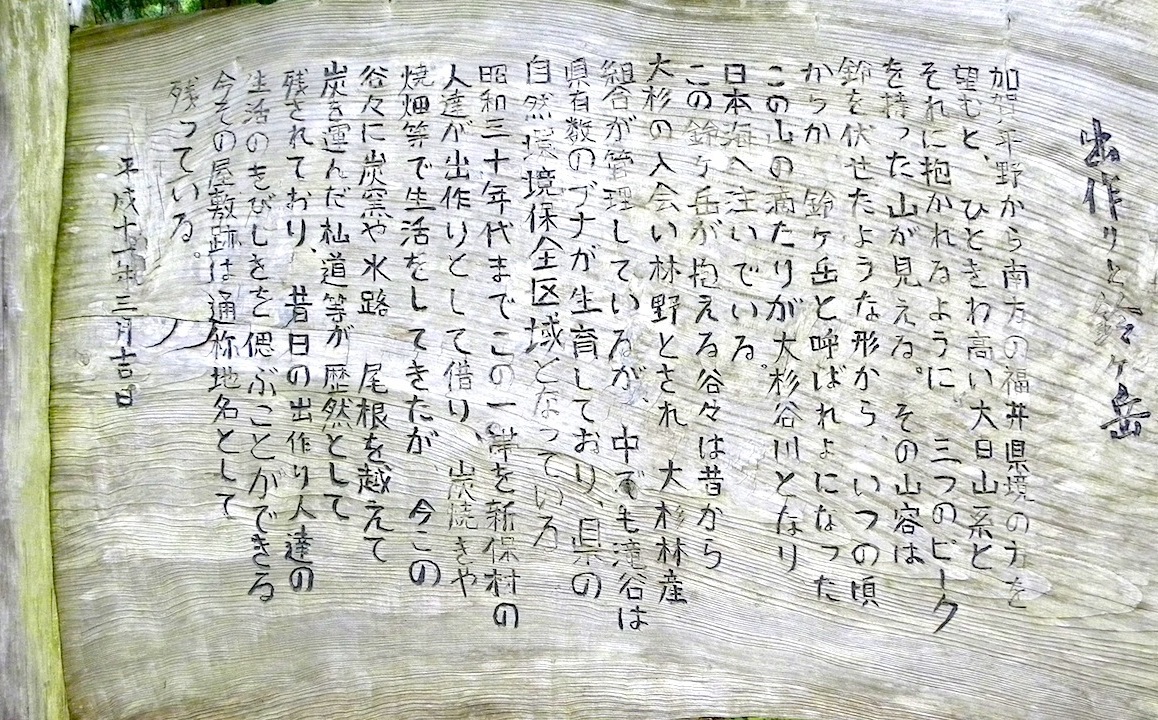 出作りと鈴ヶ岳
加賀平野から南方の福井県境の方を
望むと、ひときわ高い大日山系と
それに抱かれるように 三つのピーク
を持った山が見える。その山容は
鈴を伏せたような形から、いつの頃
からか 鈴ヶ岳と呼ばれょになった
この山の滴たりが大杉谷川となり
日本海へ注いでいる。
この鈴ヶ岳が抱える谷々は昔から
大杉の入会い林野とされ 大杉林産
組合が管理しているが、中でも滝谷は
県有数のブナが生育しており、県の
自然環境保全区域となっている
昭和三十年代までこの一帯を新保村の
人達が出作りとして借り、炭焼きや
焼畑等で生活をしてきたが、今この
谷々に炭窯や水路 尾根を越えて
炭を運んだ杣道等が 歴然として
残されており、昔日の出作り人達の
生活のきびしさを偲ぶことができる
今その屋敷跡は通称地名として
残っている。
平成十一年三月吉日